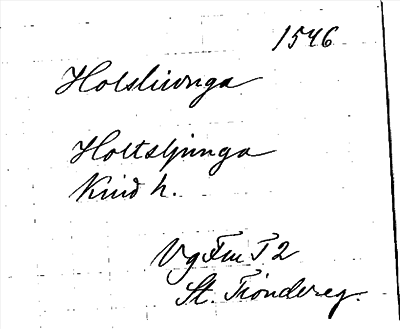 1546
Holsliunga
Holtsljunga
Kind h.
Vg Fm T 2
St. Tiondereg.